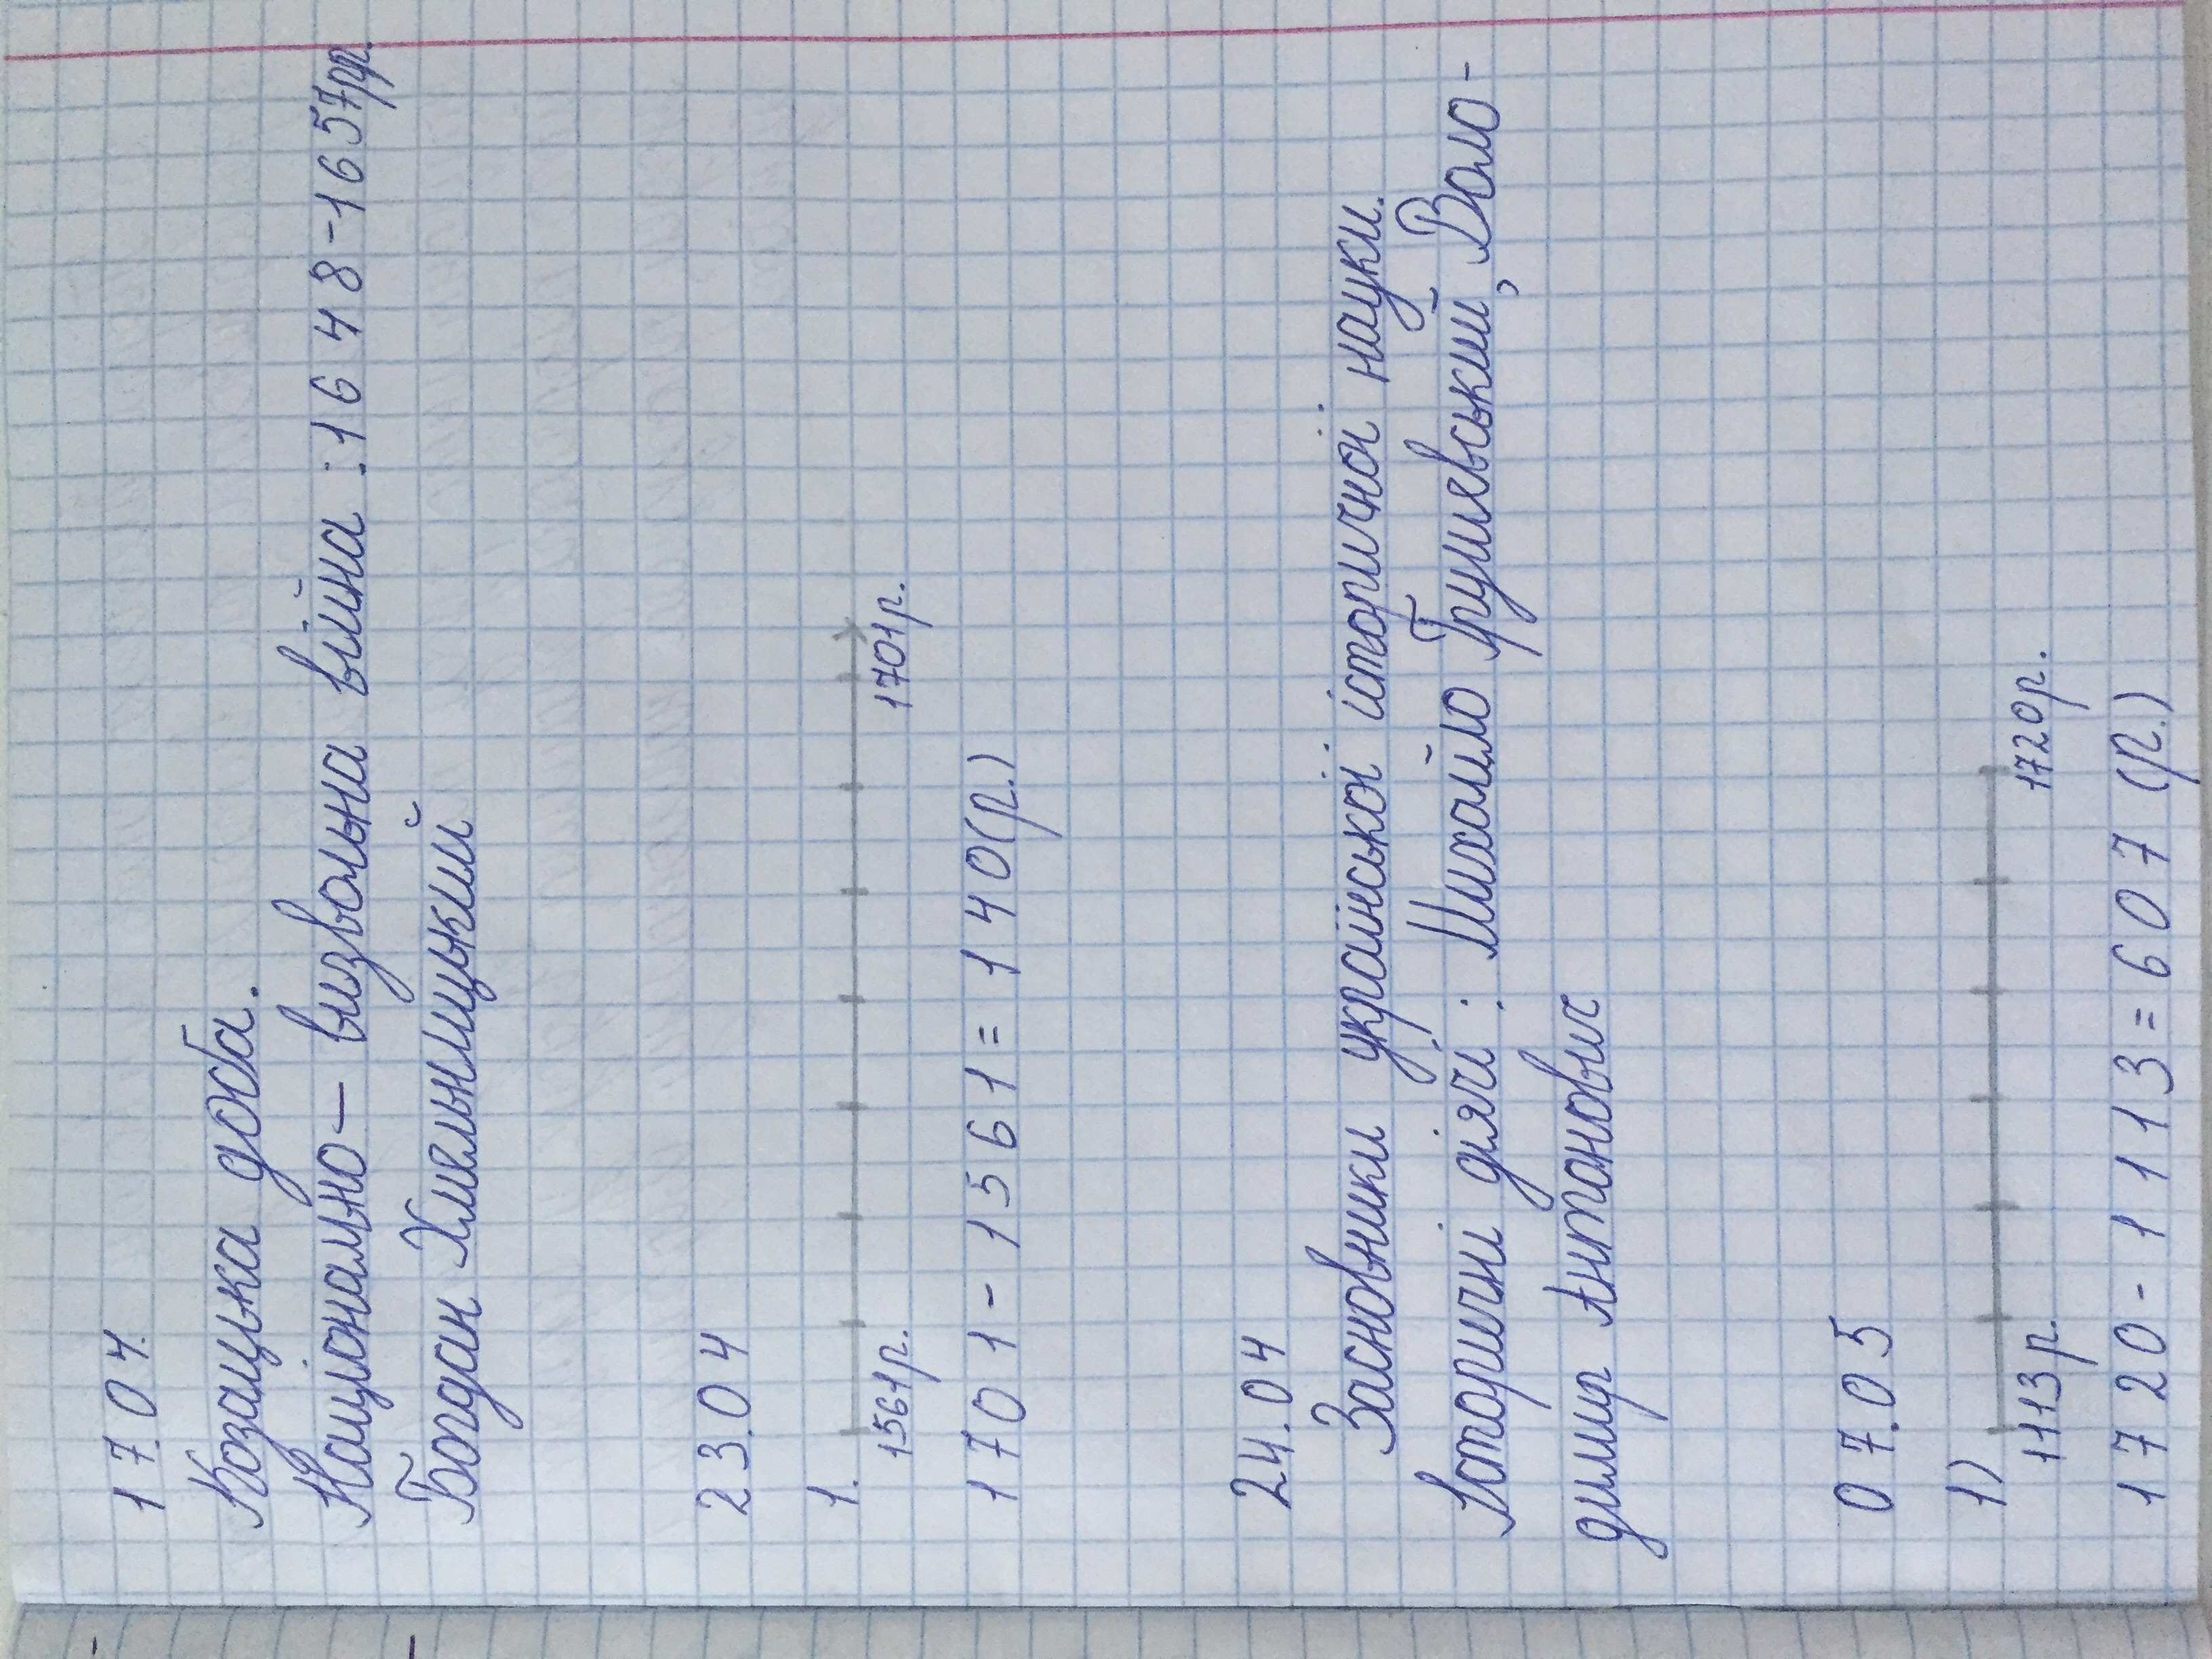 17.04.
Козацька доба.
Національно – визвольна війна : 1648-1657рр.
Богдан Хмельницький
23.04
1.
1561р. 1701р.
1701-1561=140(р.)
24.04
Засновники української історичної науки.
Історичні діячі : Михайло Грушевський, Воло-
димир Антонович
07.05
1)
1113р. 1720р.
1720-1113=607(р.)